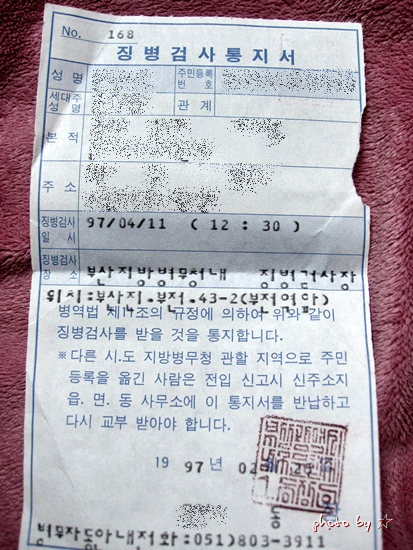 No. 168
징병검사통지서
성 명
주민등록
번 호
세대주
성 명
관 계
본 적
주 소
징병검사
일 시
97/04/11 ( 12 : 30 )
징병검사
장 소
부산지방병무청내 징병검사장
위치:부산진.부전.43-2(부전역앞)
병역법 제 조의 규정에 의하여 위와 같이
징병검사를 받을 것을 통지합니다.
※다른 시.도 지방병무청 관할 지역으로 주민
등록을 옮긴 사람은 전입 신고시 신주소지
읍. 면. 동 사무소에 이 통지서를 반납하고
다시 교부 받아야 합니다.
19 97 년 02
동
병무자동안내전화:051)803-3911
photo by ☆